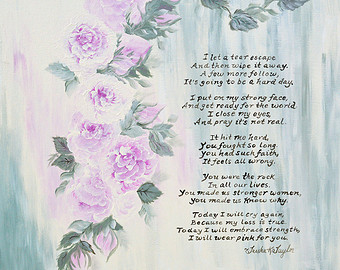 I let a tear escape
And then wipe it away.
A few more follow,
It's going to be a hard day.
I put on my strong face,
And get ready for the world
I close my eyes,
And pray it's not real.
It hit me hard,
You fought so long.
You had such faith,
It feels all wrong.
You were the rock
In all our lives.
You made us stronger women,
You made us know why.
Today I will cry again,
Because my loss is true.
Today I will embrace strength,
I will wear pink for you.